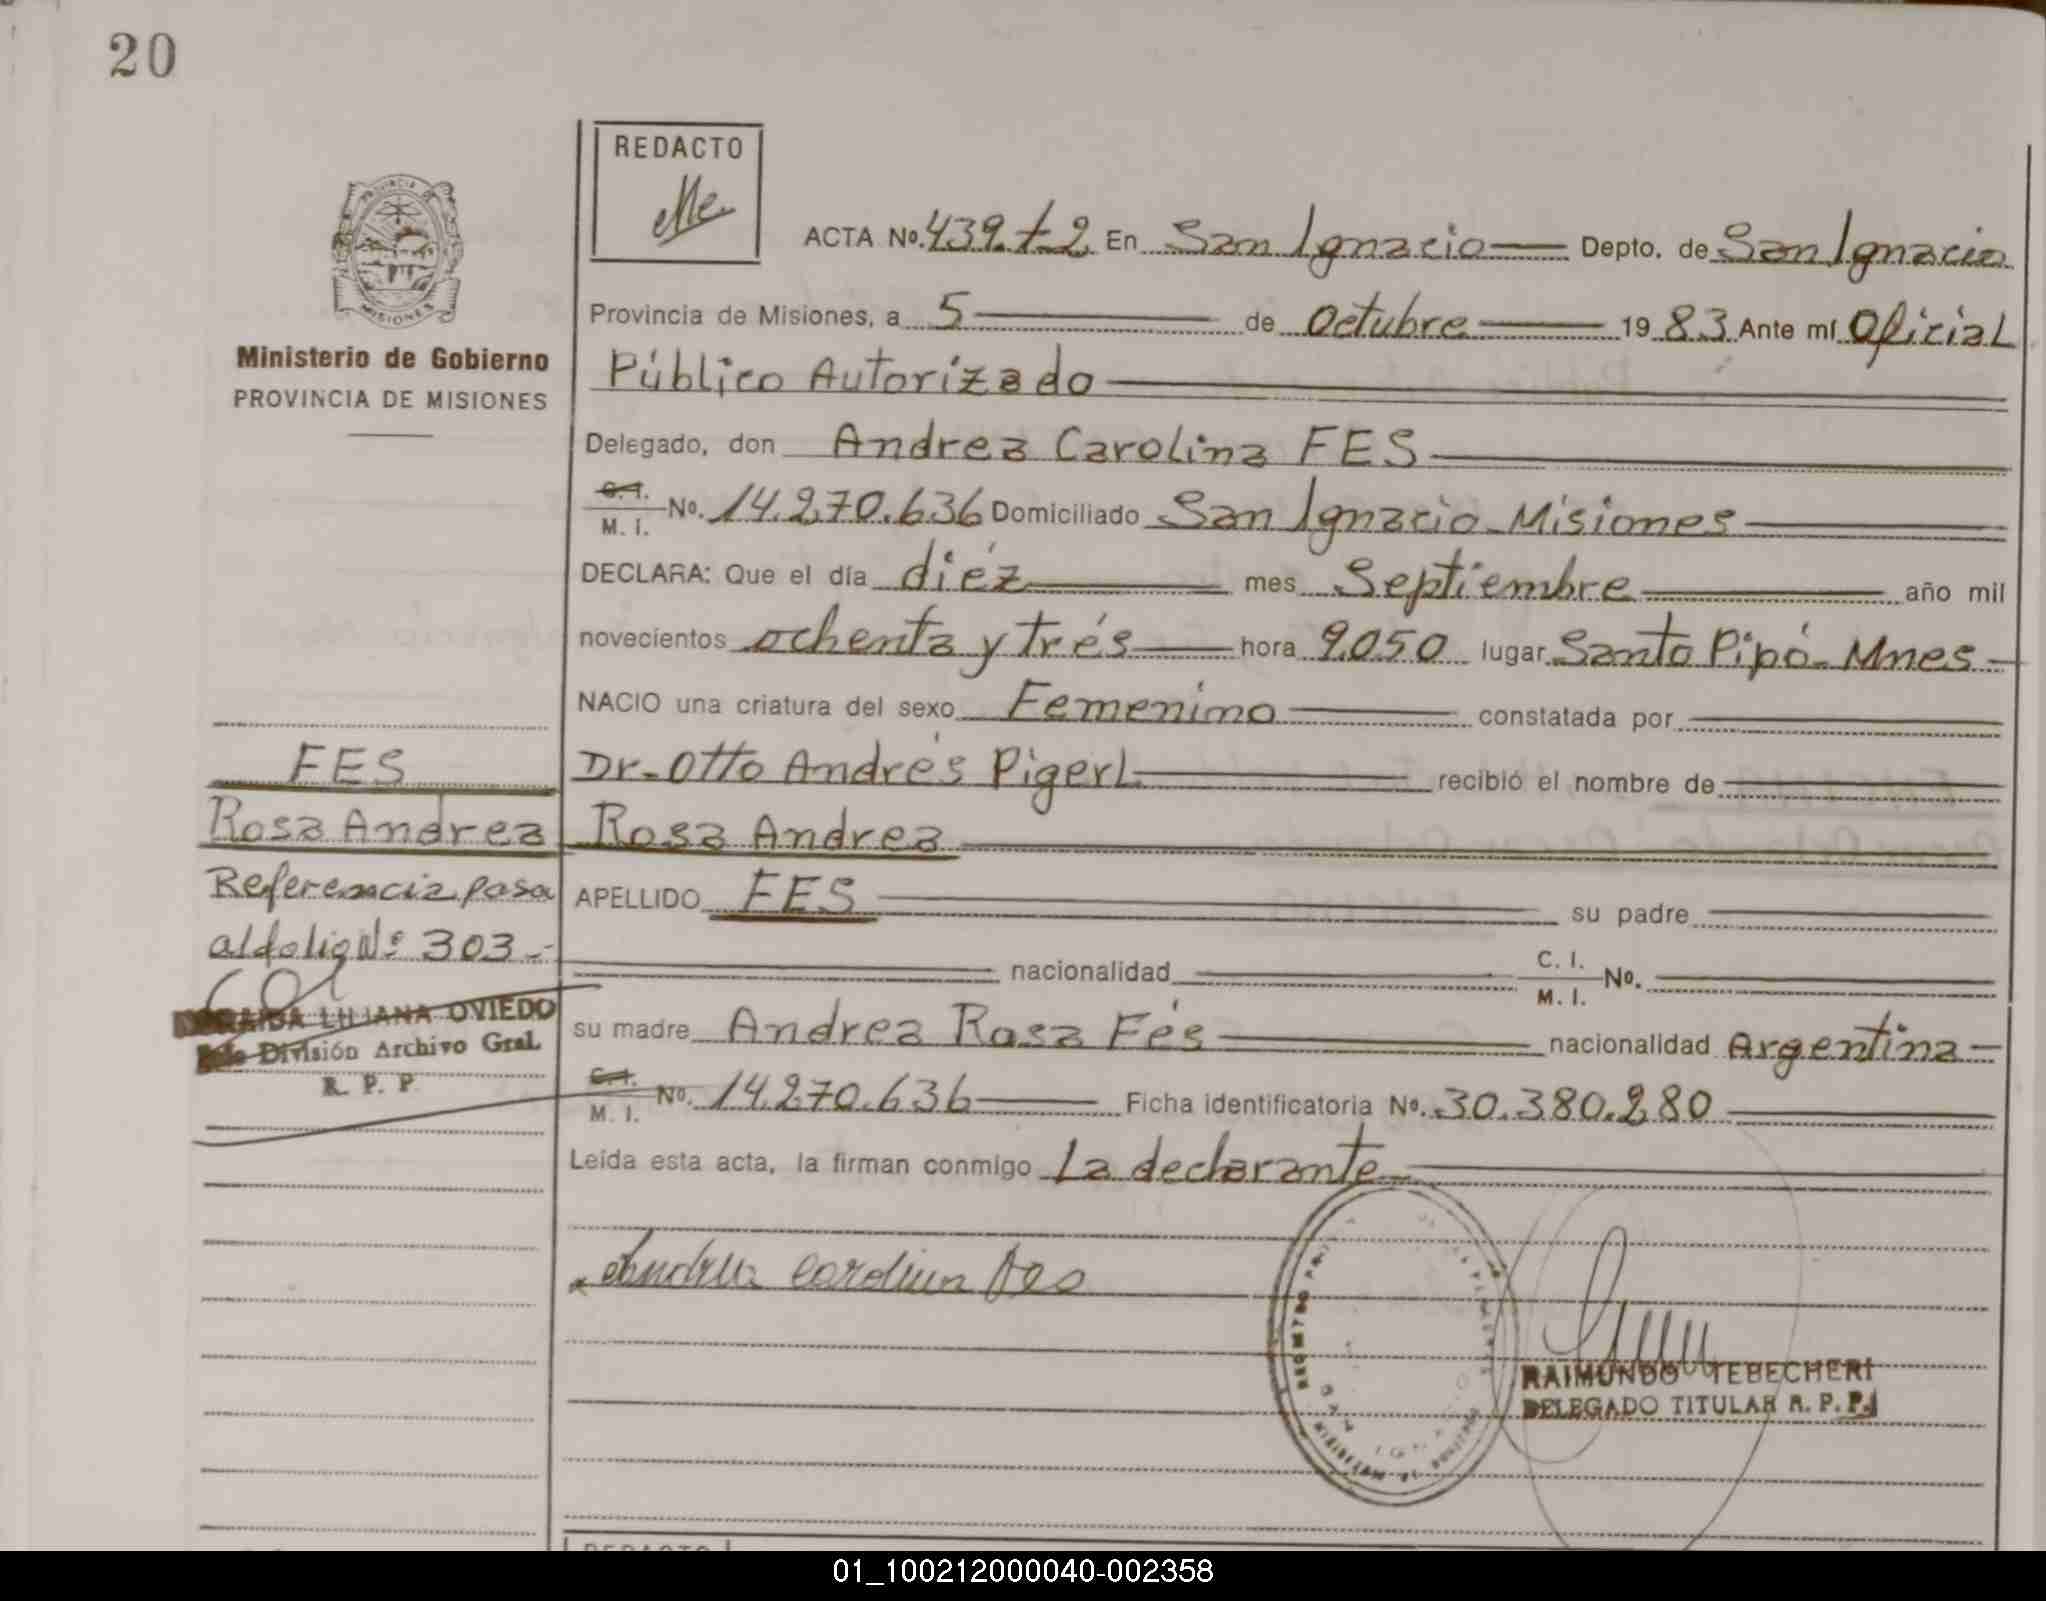 20
REDACTO
ACTA Nº. 439. t-2 En San Ignacio Depto. de San Ignacio
PROVINCIA DE
MISIONES
Provincia de Misiones, a 5 de Octubre 19 83 Ante mí Oficial
Ministerio de Gobierno
PROVINCIA DE MISIONES
Público Autorizado
Delegado, don Andrea Carolina FES
C.I.
M. I. Nº. 14.270.636 Domiciliado San Ignacio Misiones
DECLARA: Que el día diéz mes Septiembre año mil
novecientos ochenta y trés hora 9.050 lugar Santo Pipó - Mnes
NACIO una criatura del sexo Femenino constatada por
FES
Dr. Otto Andrés Pigerl recibió el nombre de
Rosa Andrea
Rosa Andrea
Referencia pasa
al folio Nº 303.-
APELLIDO FES su padre
nacionalidad C. I.
M. I. Nº.
LILIANA OVIEDO
División Archivo Gral.
R. P. P.
su madre Andrea Rosa Fés nacionalidad Argentina
C.I.
M. I. Nº. 14.270.636 Ficha identificatoria Nº. 30.380.280
Leída esta acta, la firman conmigo La declarante
Andrea Carolina Fes
RAIMUNDO TEBECHERI
DELEGADO TITULAR R. P. P.
REDACTO
01_100212000040-002358